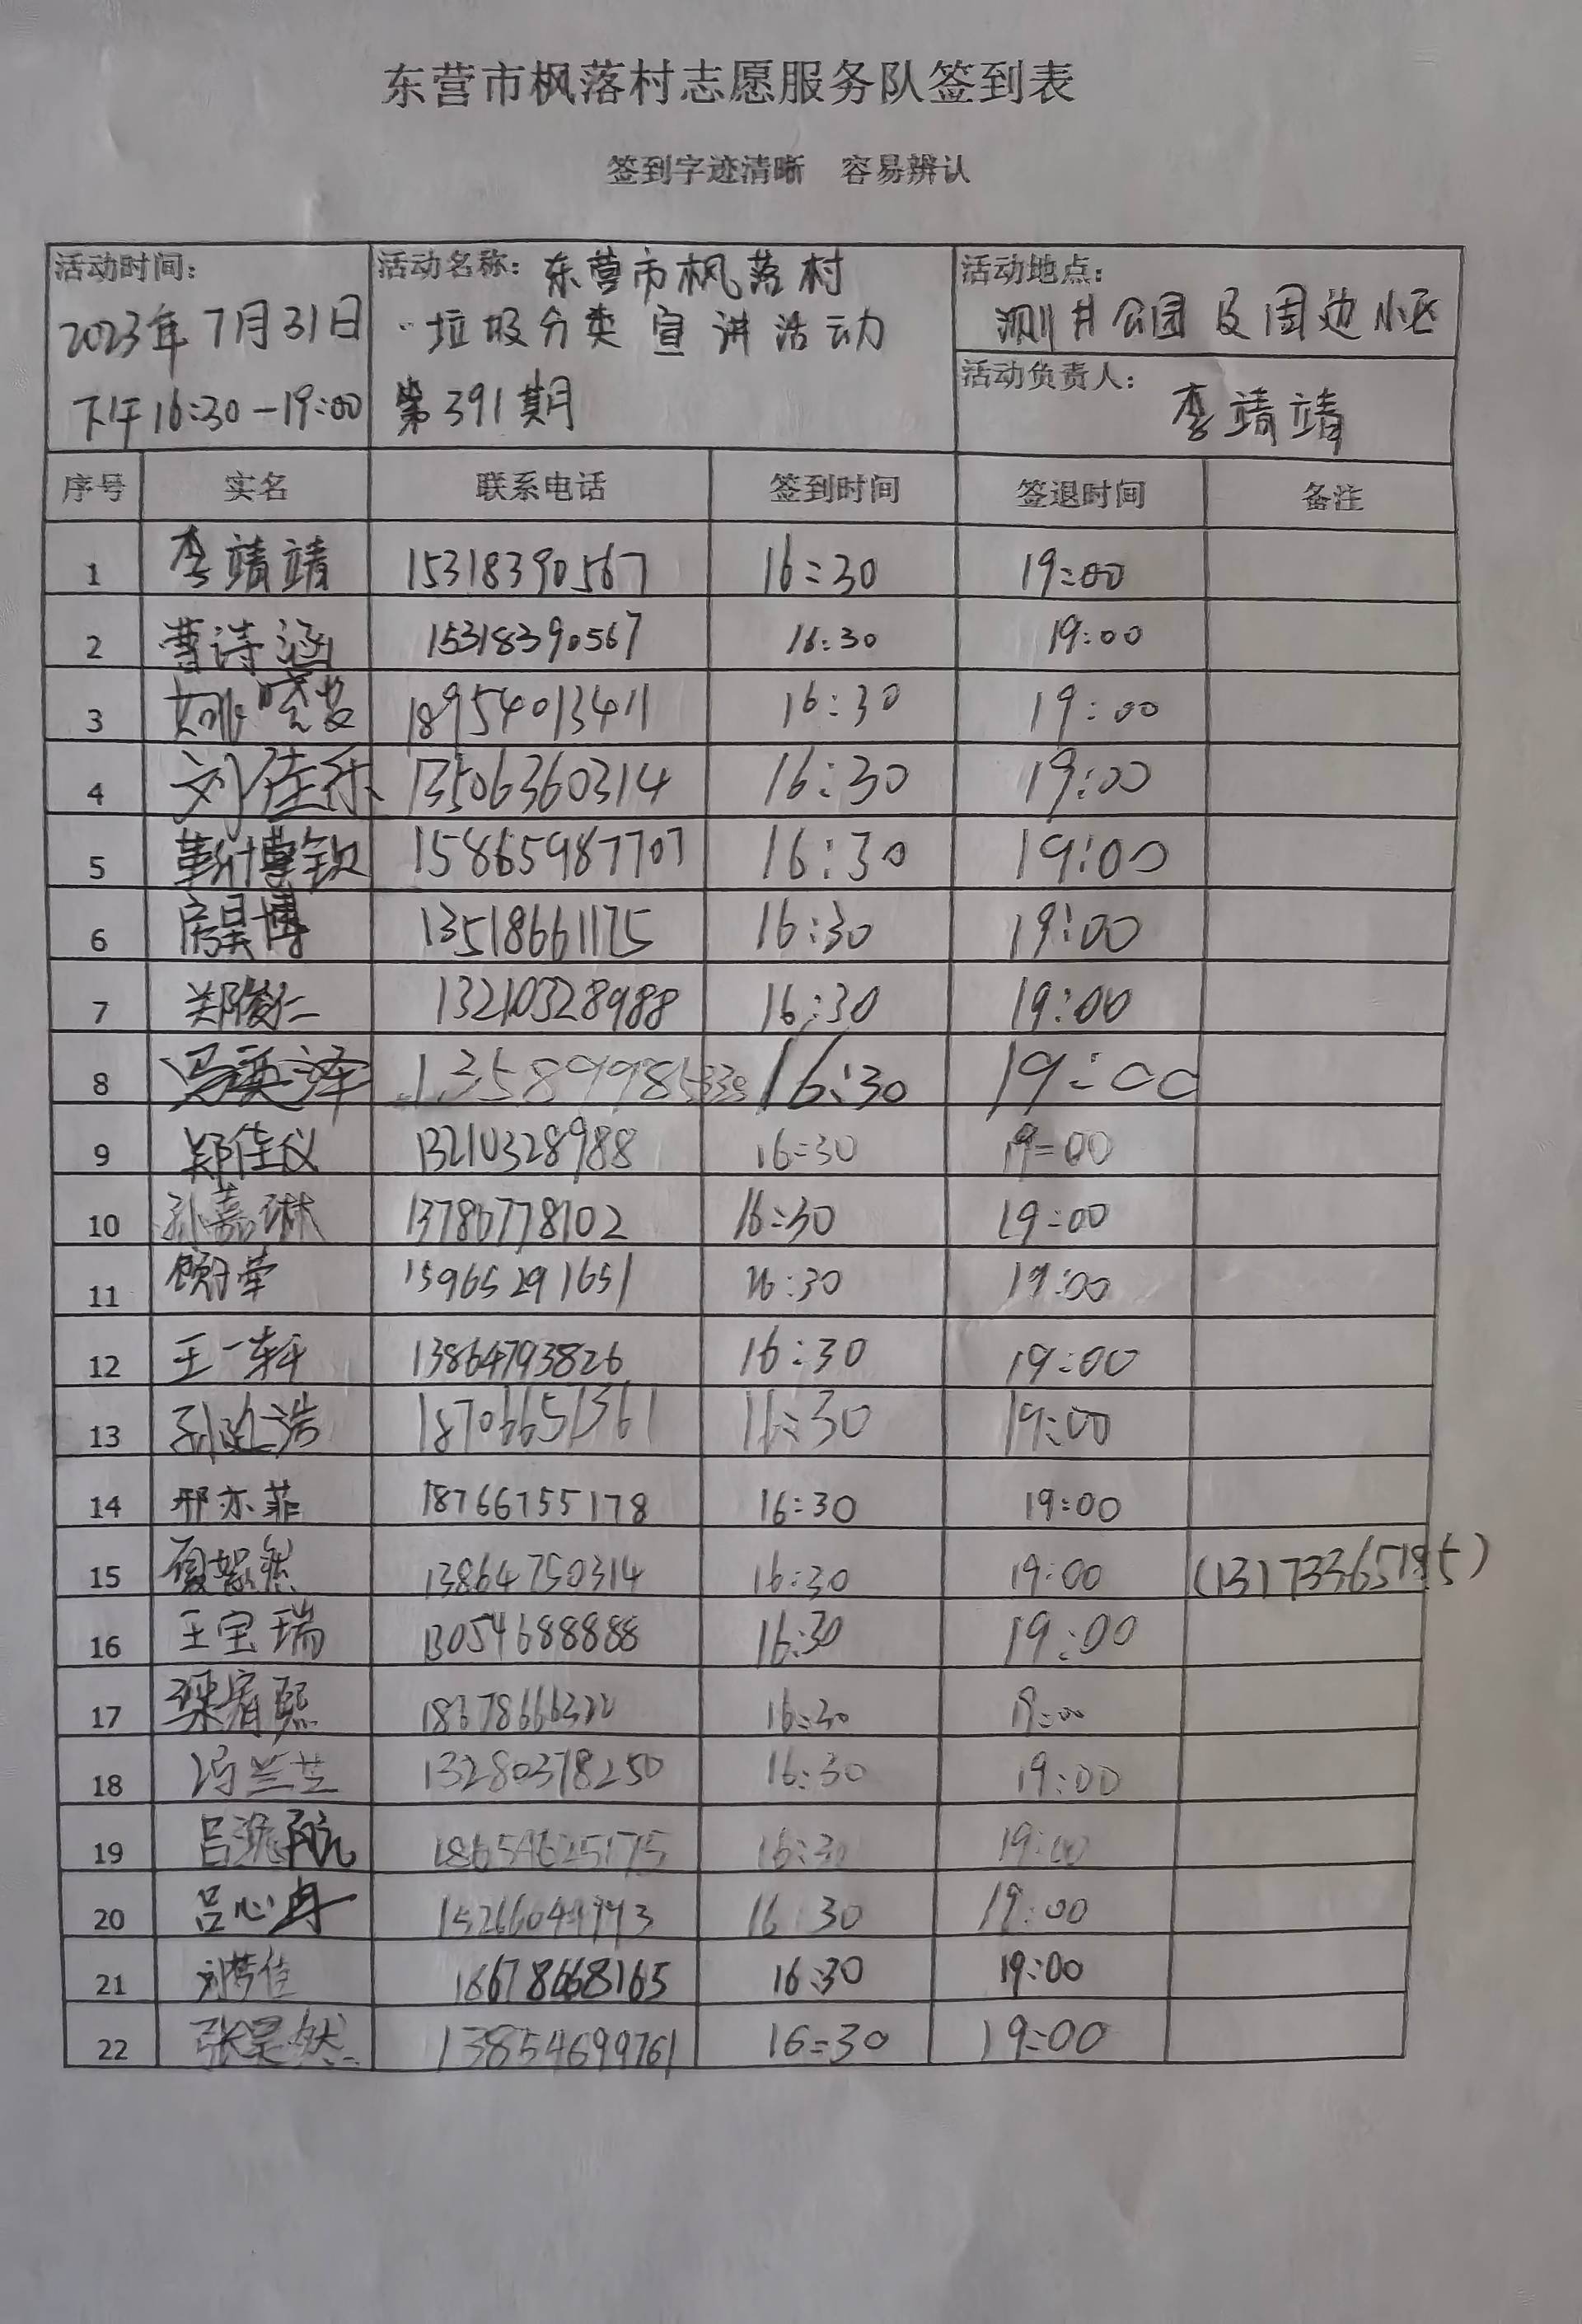 东营市枫落村志愿服务队签到表
签到字迹清晰 容易辨认
活动时间：
2023年7月31日
下午16:30-19:00
活动名称：东营市枫落村
垃圾分类宣讲活动
第391期
活动地点：
测井公园及周边小区
活动负责人：
李靖靖
序号 实名 联系电话 签到时间 签退时间 备注
1 李靖靖 15318390567 16:30 19:00
2 曹诗涵 15318390567 16:30 19:00
3 18954013411 16:30 19:00
4 刘佳乐 13506360314 16:30 19:00
5 靳博钦 15865987707 16:30 19:00
6 房昊博 13518661175 16:30 19:00
7 郑俊仁 13210328988 16:30 19:00
8 冯奕泽 16:30 19:00
9 郑佳仪 13210328988 16:30 19:00
10 孙嘉琳 13780778102 16:30 19:00
11 15965291651 16:30 19:00
12 王一轩 13864793826 16:30 19:00
13 18706651361 16:30 19:00
14 邢亦菲 18766755178 16:30 19:00
15 13864750314 16:30 19:00 (13173365195)
16 王宝瑞 13054688888 16:30 19:00
17 16:30 19:00
18 冯兰芝 13280378250 16:30 19:00
19 18654625175 16:30 19:00
20 吕心冉 16:30 19:00
21 刘梦佳 16678668165 16:30 19:00
22 张昊然 13854699761 16:30 19:00